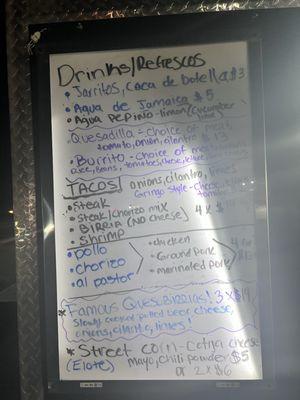 Drinks/Refrescos
• Jarritos, Coca de botella $3
• Agua de Jamaica $5
• Agua pepino-limon (Cucumber lime)
Quesadilla - choice of meat,
tomato, onion, cilantro $13
• Burrito - choice of meat
rice, beans, tomatoes, cheese,
TACOS onions, cilantro, lime
Gringo Style - cheese,
• Steak
• Steak/chorizo mix
• Birria (NO cheese) 4 x
• Shrimp
• pollo
• chorizo
• al pastor
• chicken
• Ground pork
• marinated pork
4 for
* Famous QuesaBirrias! 3 x $14
Slowly cooked pulled beef, cheese,
onions, cilantro, limes!
* Street corn - Cotija cheese
(Elote) Mayo, chili powder $5
or 2 x $6